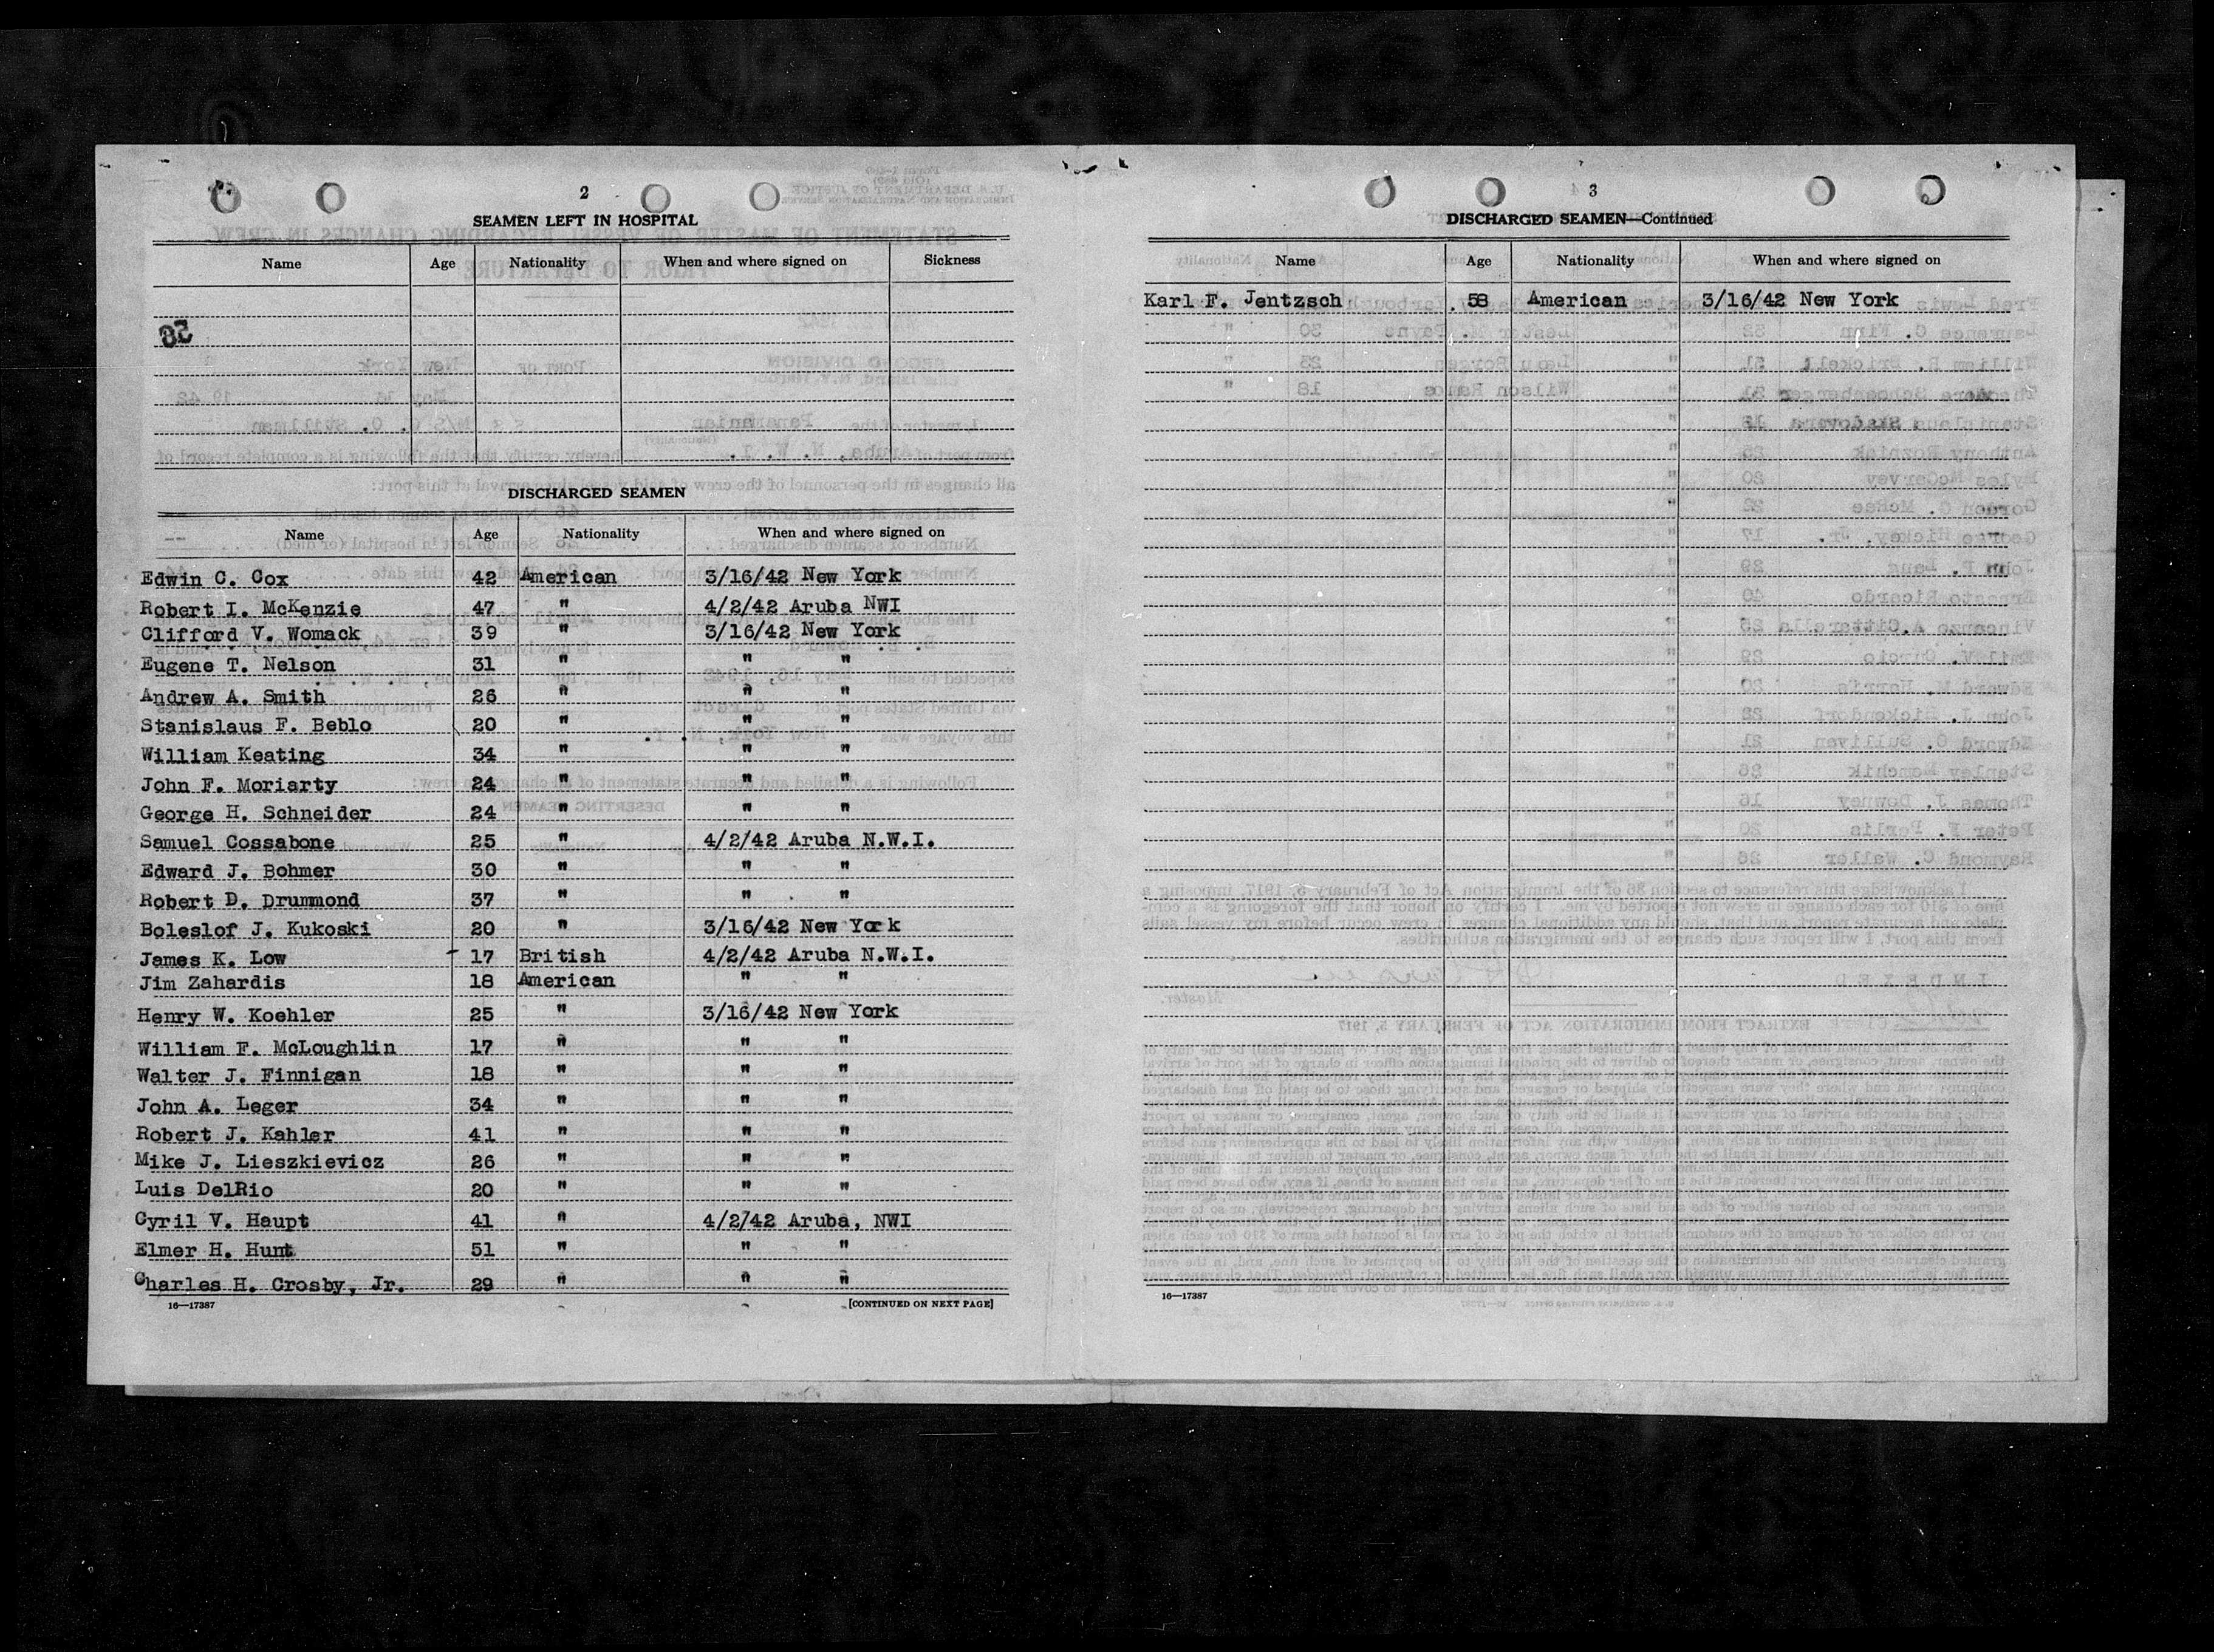 2
SEAMEN LEFT IN HOSPITAL
Name Age Nationality When and where signed on Sickness
DISCHARGED SEAMEN
Name Age Nationality When and where signed on
Edwin C. Cox 42 American 3/16/42 New York
Robert I. McKenzie 47 " 4/2/42 Aruba NWI
Clifford V. Womack 39 " 3/16/42 New York
Eugene T. Nelson 31 " " "
Andrew A. Smith 26 " " "
Stanislaus F. Beblo 20 " " "
William Keating 34 " " "
John F. Moriarty 24 " " "
George H. Schneider 24 " " "
Samuel Cossabone 25 " 4/2/42 Aruba N.W.I.
Edward J. Bohmer 30 " " "
Robert D. Drummond 37 " " "
Boleslof J. Kukoski 20 " 3/16/42 New York
James K. Low 17 British 4/2/42 Aruba N.W.I.
Jim Zahardis 18 American " "
Henry W. Koehler 25 " 3/16/42 New York
William F. McLoughlin 17 " " "
Walter J. Finnigan 18 " " "
John A. Leger 34 " " "
Robert J. Kahler 41 " " "
Mike J. Lieszkievicz 26 " " "
Luis DelRio 20 " " "
Cyril V. Haupt 41 " 4/2/42 Aruba, NWI
Elmer H. Hunt 51 " " "
Charles H. Crosby, Jr. 29 " " "
16—17387 [CONTINUED ON NEXT PAGE]
3
DISCHARGED SEAMEN—Continued
Name Age Nationality When and where signed on
Karl F. Jentzsch 58 American 3/16/42 New York
16—17387